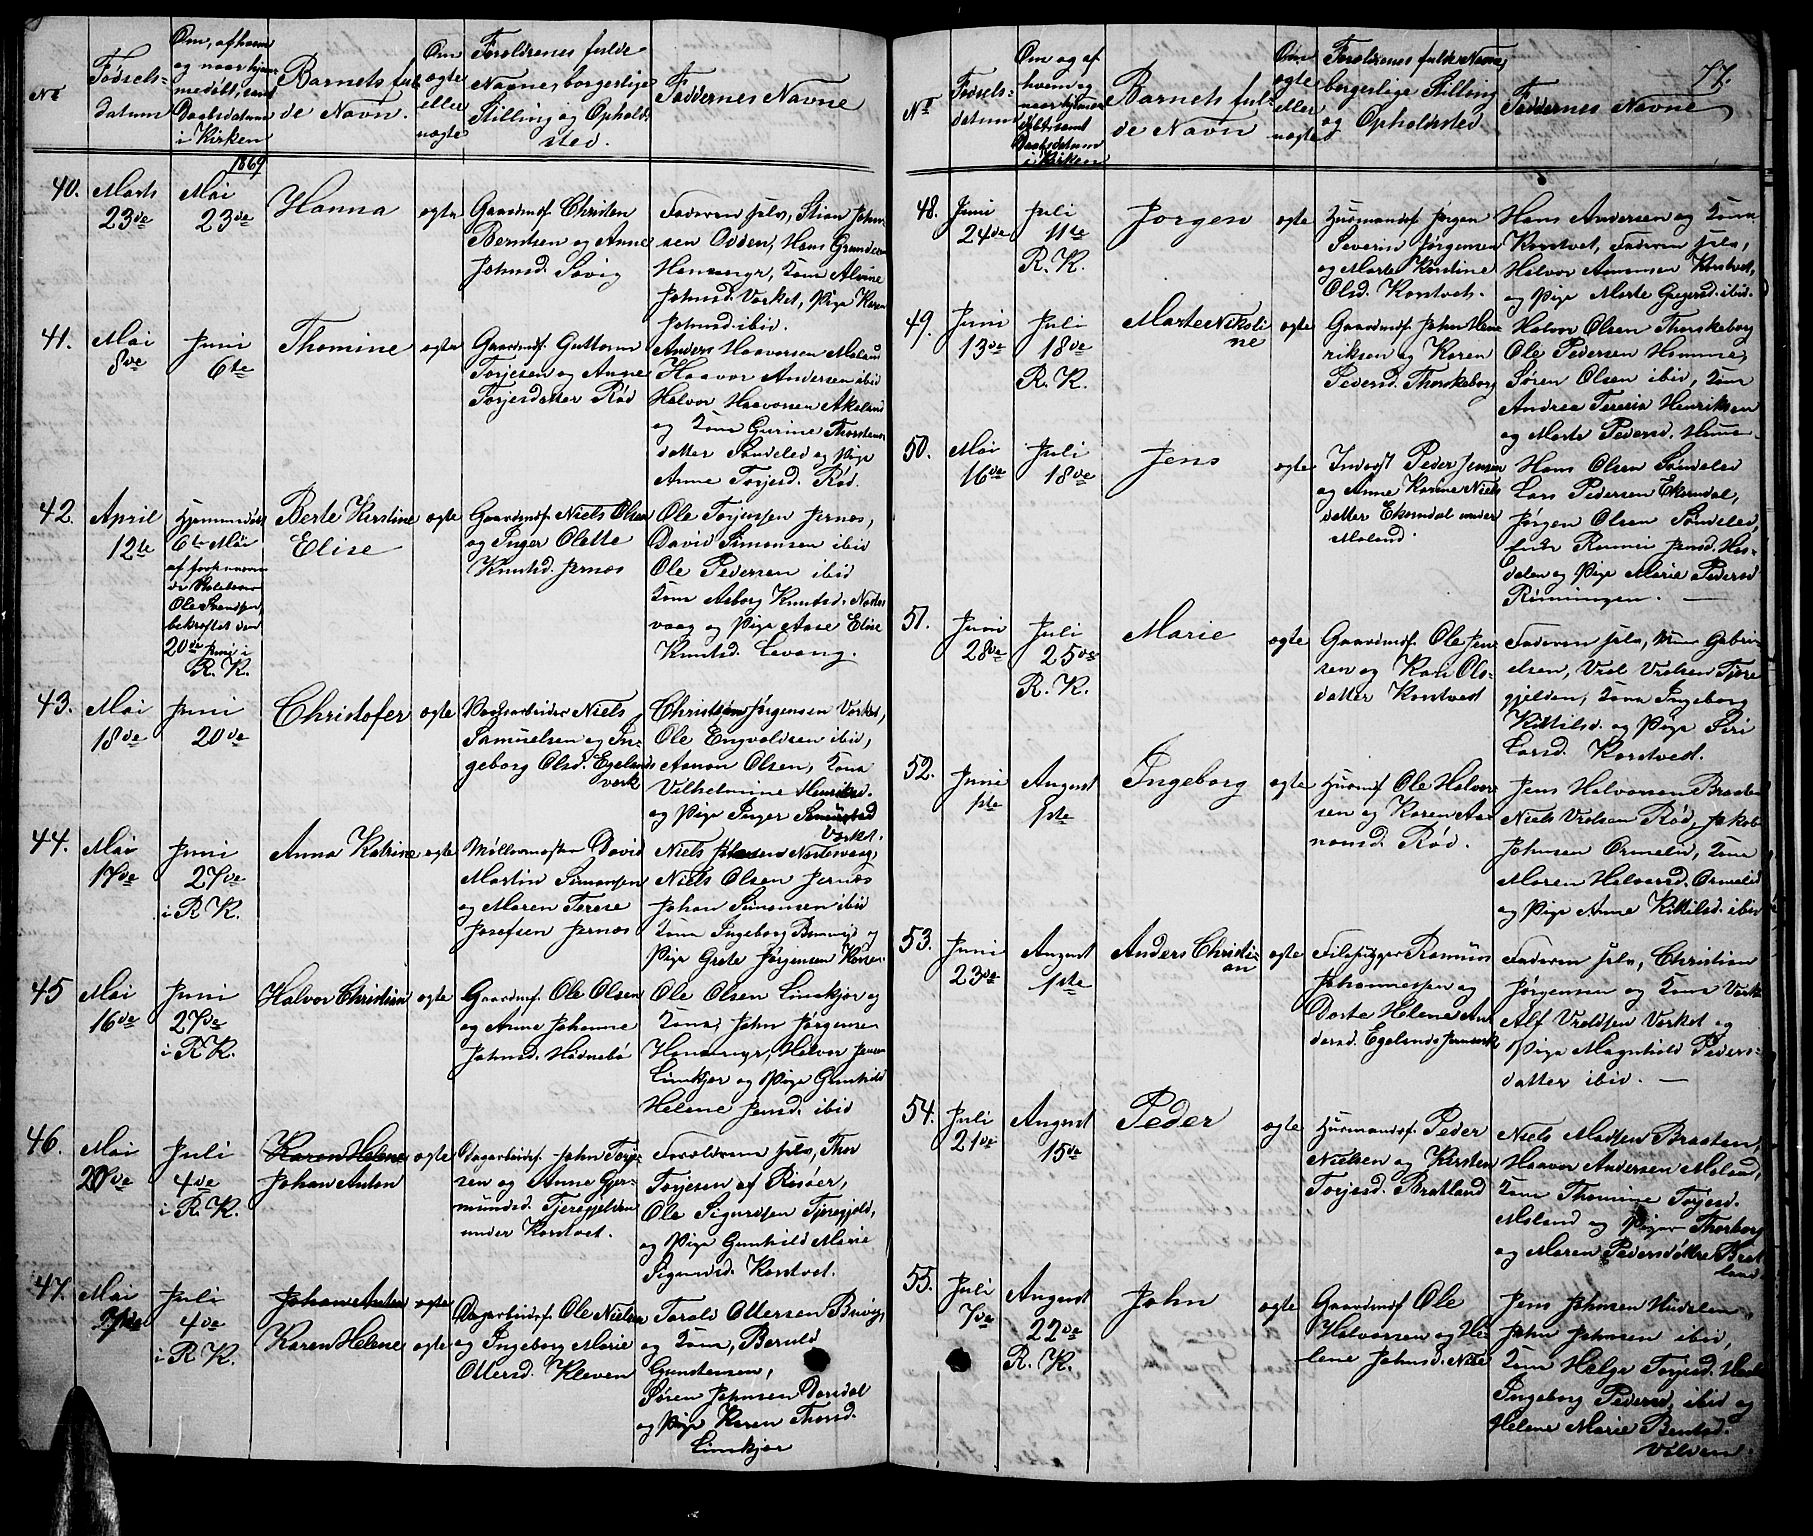 No
Fødsels-
datum
Om, af hvem
og naar hjem-
medøbt, samt
Daabsdatum
i Kirken
Barnets ful-
de Navn.
Om
ægte
eller
uægte
Forældrenes fulde
Navne, borgerlige
Stilling og Ophold-
sted.
Faddernes Navne
1869
40.
Marts
23de
Mai
23de
Hanna
ægte
Gaardmd. Christen
Berntsen og Anne
Johnsd. Søvig
Faderen selv, Stian John-
sen Odden, Hans Gundersen
Hanemyr, Kona Alvine
Johnsd. Værket, Pige Karen
Johnsd. ibid.
41.
Mai
8de
Juni
6te
Thomine
ægte
Gaardmd. Guttorm
Torjesen og Anne
Torjesdatter Rød
Anders Haavorsen Moland
Haavor Andersen ibid
Halvor Haavorsen Akeland
og Kona Gurine Thorstens-
datter Søndeled og Pige
Anne Torjesd. Rød.
42.
April
12te
Hjemmedøbt
6te Mai
af
Ole Svendsen
bekræftet den
20de Juni i
R. K.
Berte Kirstine
Elise
ægte
Gaardmd. Niels Olsen
og Inger Olette
Knutsd. Jernæs
Ole Torjussen Jernæs,
David Simonsen ibid
Ole Pedersen ibid
Kona Aasborg Knutsd. Norte-
vaag og Pige Aase Elise
Knutsd. Levang.
43.
Mai
18de
Juni
20de
Christofer
ægte
Niels
Samuelsen og In-
geborg Olsd. Egelands
verk
Christen Jørgensen Værket,
Ole Engvoldsen ibid,
Aanon Olsen, Kona
Vilhelmine Henriksd.
og Pige Inger
Værket.
44.
Mai
17de
Juni
27de
i R. K.
Anna Katrine
ægte
Møllermester David
Martin Simonsen
og Maren Terese
Josefsen Jernæs
Niels Johnsen Nortevaag,
Niels Olsen Jernæs
Johan Simonsen ibid
Kona Ingeborg og
Pige Grete Jørgensen
45
Mai
16de
Juni
27de
i R. K.
Halvor Christian
ægte
Gaardmd. Ole Olsen
og Anne Johanne
Johnsd. Hødnebø
Ole Olsen Limkjær og
Kona, John Jørgensen
Hanemyr, Halvor Jensen
Limkjær og Pige Gunhild
Helene Jensd. ibid
46.
Mai
20de
Juli
4de
i R. K.
Karen Helene
Johan Anton
ægte
Dagarbeidsf. John Torje-
sen og Anne Gjer-
mundsd. Fjeregjelden
under Korstvet.
Forældrene selv, Thor
Torjesen af Risøer,
Ole Sigurdsen Fjeregjeld,
og Pige Gunhild Marie
Sigurdsd. Korstvet.
47.
Mai
Juli
4de
i R. K.
Johan Anton
Karen Helene
ægte
ægte
Dagarbeidsf. Ole Nielsen
og Ingeborg Marie
Ottersd. Kleven
Torald Ottersen
og Kona, Bernt
Gundersen,
Søren Johnsen Dørsdal
og Pige Karen Thorsd.
Limkjær
77.
No
Fødsels-
datum
Om og af
hvem og
naar hjemme-
døbt, samt
Daabsdatum
i Kirken
Barnets ful-
de Navn
Om
ægte
eller
uægte
Forældrenes fulde Navne,
borgerlige Stilling
og Opholdsted
Faddernes Navne
48.
Juni
24de
Juli
11te
R. K.
Jørgen
ægte
Husmandsf. Jørgen
Severin Jørgensen
og Marte Kirstine
Olsd. Korstvet.
Hans Andersen og Kona
Korstvet, Faderen selv,
Halvor Aanonsen Korstvet,
og Pige Marte Gregersd. ibid.
49.
Juni
13de
Juli
18de
R. K.
Marte Nikoli-
ne
ægte
Gaardmdf. John Hen-
riksen og Karen
Pedersd. Thorskeborg
Halvor Olsen Thorskeborg
Ole Pedersen Homme,
Søren Olsen ibid, Kona
Andrea Teresia Henriksen
og Marte Pedersd.
50.
Mai
16de
Juli
18de
Jens
ægte
Inderst Peder Jensen
og Anne Karine Niels-
datter Ekerndal under
Moland.
Hans Olsen Søndeled
Lars Pedersen Ekerndal,
Jørgen Olsen Søndeled,
Enke Jensd. Has-
dalen og Pige Marie Pedersd
Rønningen.
51.
Juni
28de
Juli
25de
R. K.
Marie
ægte
Gaardmdf. Ole Jen-
sen og Kari Ols-
datter Korstvedt
Faderen selv, Gabri-
elsen, Vrol Vrolsen Fjære-
gjelden, Kona Ingeborg
Kittilsd. og Pige Siri
Larsd. Korstvedt.
52.
Juni
1ste
August
1ste
Ingeborg
ægte
Husmdf. Ole Halvor-
sen og Karen Aa-
nonsd. Rød.
Jens Halvorsen Braaten
Niels Vrolsen Rød, Jakob
Johnsen Ormelid, Kona
Maren Halvorsd. Ormelid
og Pige Anne Kittilsd. ibid
53.
Juni
23de
August
1ste
Anders Christi-
an
ægte
Rasmus
Johannessen og
Dorte Helene An-
dersd. Egelands Jernverk
Faderen selv, Christian
Jørgensen og Kona Værket
Alf Vroldsen Værket og
Pige Magnhild Peders-
datter ibid.
54.
Juli
21de
August
15de
Peder
ægte
Husmandsf. Peder
Nielsen og Kirsten
Torjesd. Bratland
Niels Madsen Braaten,
Haavor Andersen Moland,
Kona Thomine Torjesd.
Moland og Piger Thorborg
og Maren Pedersdøttre Brat-
land.
55.
Juli
7de
August
22de
R. K.
John
ægte
Gaardmdf. Ole
Halvorsen og He-
lene Johnsd.
Jens Johnsen
John Johnsen ibid,
Kona Helge Torjesd.
Ingeborg Pedersd. ibid og
Helene Marie Bentsd.